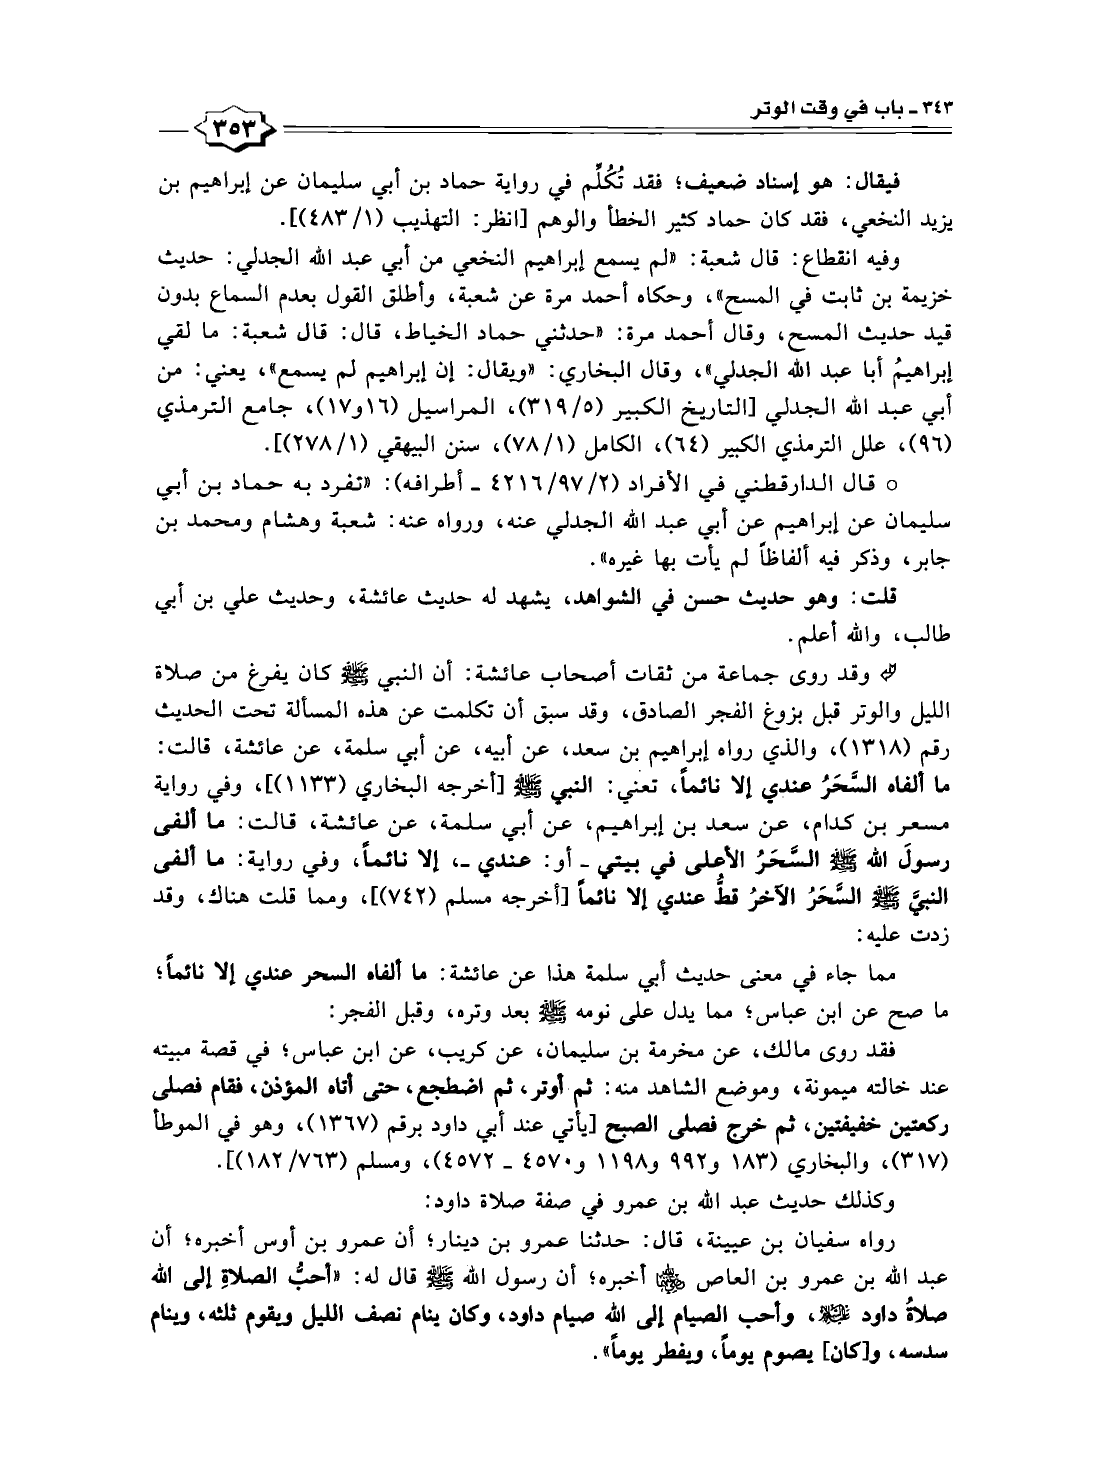 ٣٤٣ ـ باب في وقت الوتر
٣٥٣
فيقال: هو إسناد ضعيف؛ فقد تُكُلِّم في رواية حماد بن أبي سليمان عن إبراهيم بن
يزيد النخعي، فقد كان حماد كثير الخطأ والوهم [انظر: التهذيب (١/ ٤٨٣)].
وفيه انقطاع: قال شعبة: «لم يسمع إبراهيم النخعي من أبي عبد الله الجدلي: حديث
خزيمة بن ثابت في المسح»، وحكاه أحمد مرة عن شعبة، وأطلق القول بعدم السماع بدون
قيد حديث المسح، وقال أحمد مرة: «حدثني حماد الخياط، قال: قال شعبة: ما لقي
إبراهيمُ أبا عبد الله الجدلي»، وقال البخاري: «ويقال: إن إبراهيم لم يسمع»، يعني: من
أبي عبد الله الجدلي [التاريخ الكبير (٥/ ٣١٩)، المراسيل (١٦و١٧)، جامع الترمذي
(٩٦)، علل الترمذي الكبير (٦٤)، الكامل (١/ ٧٨)، سنن البيهقي (١/ ٢٧٨)].
○ قال الدارقطني في الأفراد (٢/ ٩٧/ ٤٢١٦ ـ أطرافه): «تفرد به حماد بن أبي
سليمان عن إبراهيم عن أبي عبد الله الجدلي عنه، ورواه عنه: شعبة وهشام ومحمد بن
جابر، وذكر فيه ألفاظاً لم يأت بها غيره».
قلت: وهو حديث حسن في الشواهد، يشهد له حديث عائشة، وحديث علي بن أبي
طالب، والله أعلم.
وقد روى جماعة من ثقات أصحاب عائشة: أن النبي ﷺ كان يفرغ من صلاة
الليل والوتر قبل بزوغ الفجر الصادق، وقد سبق أن تكلمت عن هذه المسألة تحت الحديث
رقم (١٣١٨)، والذي رواه إبراهيم بن سعد، عن أبيه، عن أبي سلمة، عن عائشة، قالت:
ما ألفاه السَّحَرُ عندي إلا نائماً، تعني: النبي ﷺ [أخرجه البخاري (١١٣٣)]، وفي رواية
مسعر بن كدام، عن سعد بن إبراهيم، عن أبي سلمة، عن عائشة، قالت: ما ألفى
رسولَ الله ﷺ السَّحَرُ الأعلى في بيتي ـ أو: عندي ـ، إلا نائماً، وفي رواية: ما ألفى
النبيَّ ﷺ السَّحَرُ الآخرُ قطُّ عندي إلا نائماً [أخرجه مسلم (٧٤٢)]، ومما قلت هناك، وقد
زدت عليه:
مما جاء في معنى حديث أبي سلمة هذا عن عائشة: ما ألفاه السحر عندي إلا نائماً؛
ما صح عن ابن عباس؛ مما يدل على نومه ﷺ بعد وتره، وقبل الفجر:
فقد روى مالك، عن مخرمة بن سليمان، عن كريب، عن ابن عباس؛ في قصة مبيته
عند خالته ميمونة، وموضع الشاهد منه: ثم أوتر، ثم اضطجع، حتى أتاه المؤذن، فقام فصلى
ركعتين خفيفتين، ثم خرج فصلى الصبح [يأتي عند أبي داود برقم (١٣٦٧)، وهو في الموطأ
(٣١٧)، والبخاري (١٨٣ و٩٩٢ و١١٩٨ و٤٥٧٠ ـ ٤٥٧٢)، ومسلم (٧٦٣/ ١٨٢)].
وكذلك حديث عبد الله بن عمرو في صفة صلاة داود:
رواه سفيان بن عيينة، قال: حدثنا عمرو بن دينار؛ أن عمرو بن أوس أخبره؛ أن
عبد الله بن عمرو بن العاص ﵄ أخبره؛ أن رسول الله ﷺ قال له: «أحبُّ الصلاةِ إلى الله
صلاةُ داود ﵇، وأحب الصيام إلى الله صيام داود، وكان ينام نصف الليل ويقوم ثلثه، وينام
سدسه، و[كان] يصوم يوماً، ويفطر يوماً».